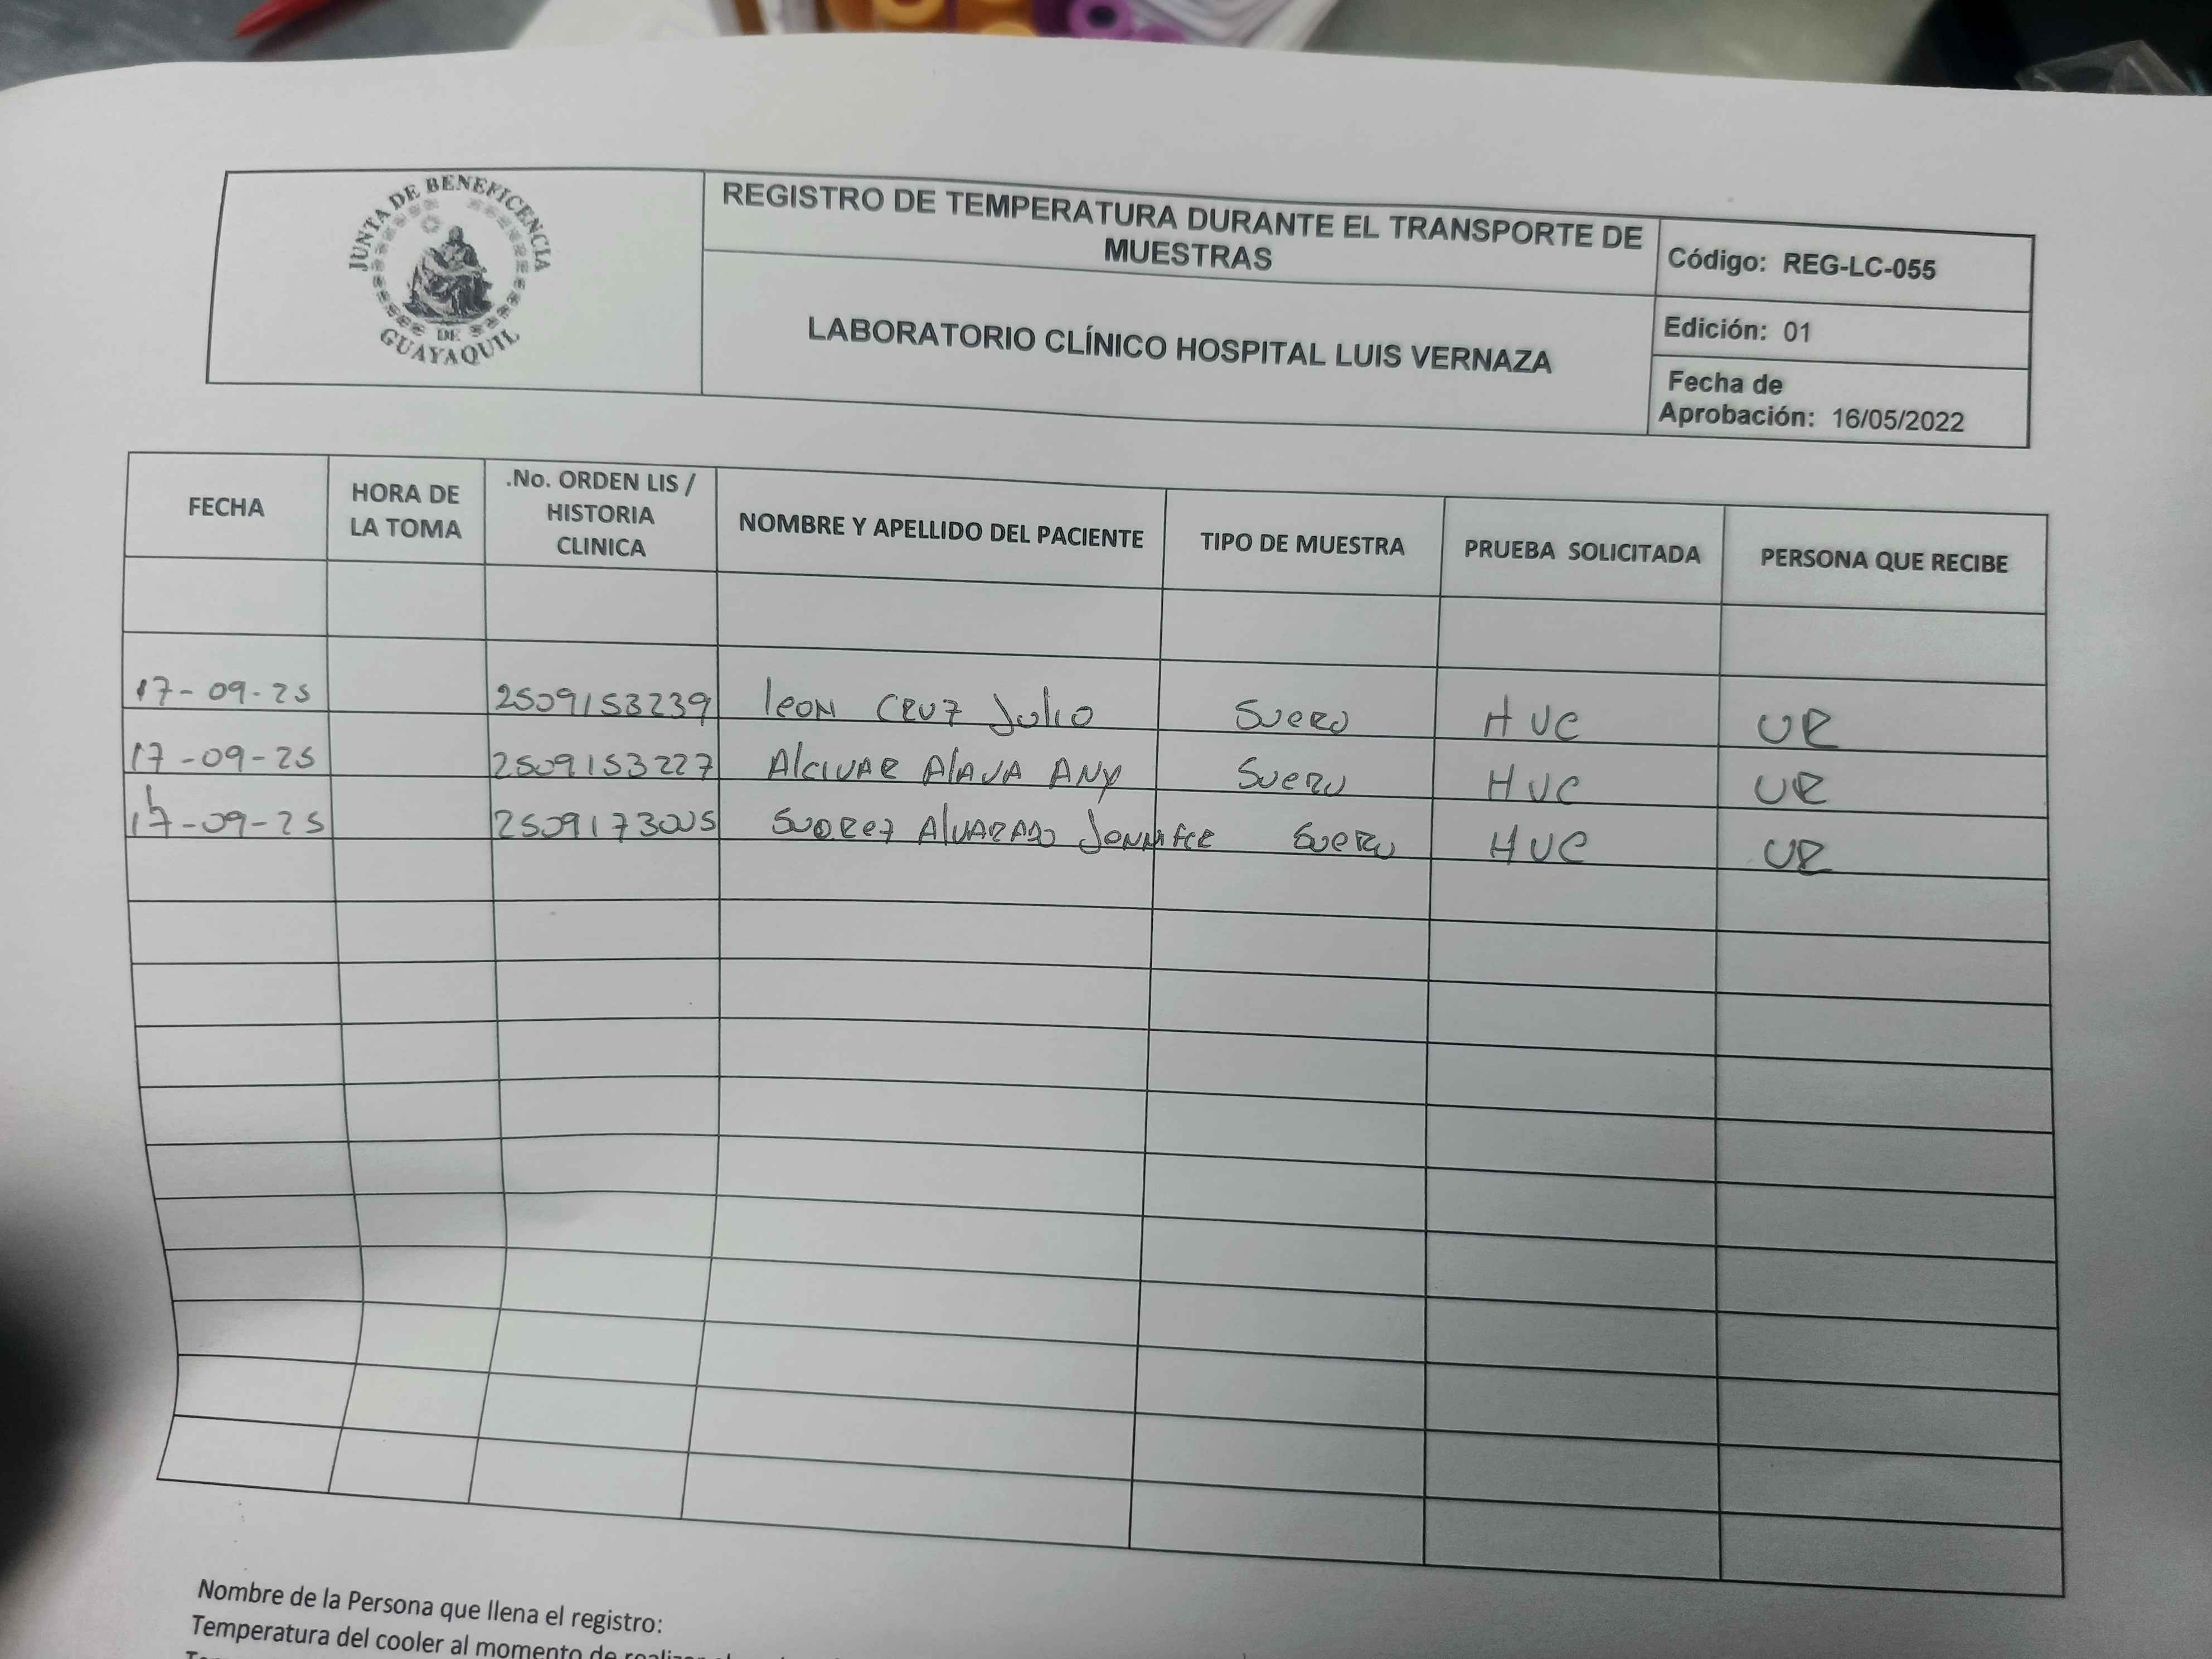 JUNTA DE BENEFICENCIA
DE
GUAYAQUIL
REGISTRO DE TEMPERATURA DURANTE EL TRANSPORTE DE
MUESTRAS
LABORATORIO CLÍNICO HOSPITAL LUIS VERNAZA
Código: REG-LC-055
Edición: 01
Fecha de
Aprobación: 16/05/2022
FECHA
HORA DE
LA TOMA
.No. ORDEN LIS /
HISTORIA
CLINICA
NOMBRE Y APELLIDO DEL PACIENTE
TIPO DE MUESTRA
PRUEBA SOLICITADA
PERSONA QUE RECIBE
17-09-25 2509153239 leON CRUZ Julio SUERO HVC VR
17-09-25 2509153227 AlCIVAR AlAVA ANy SUERO HVC VR
17-09-25 2509173005 SUAREZ AlVARADO JENNIFER SUERO HVC VR
Nombre de la Persona que llena el registro:
Temperatura del cooler al momento de realizar